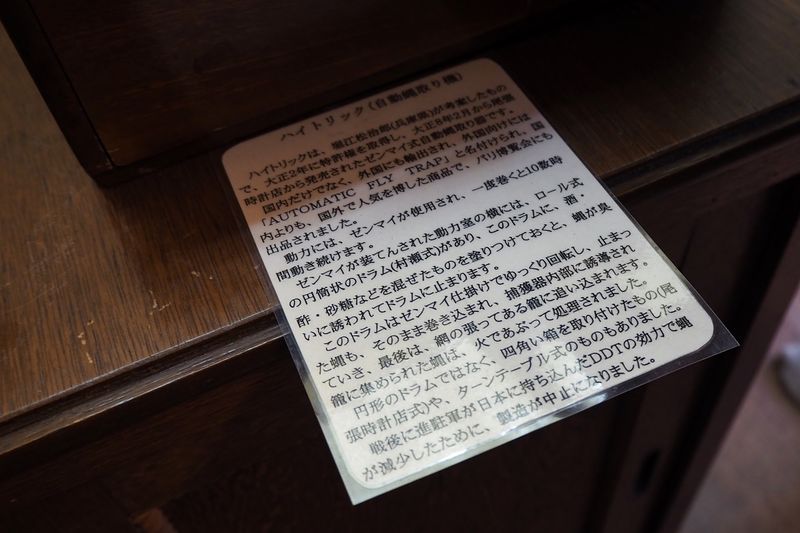 ハイトリック(自動蠅取り機)
ハイトリックは、堀江松治郎(兵庫県)が考案したもの
で、大正2年に特許権を取得し、大正8年2月から尾張
時計店から発売されたゼンマイ式自動蠅取り器です。
国内だけでなく、外国にも輸出され、外国向けには
「AUTOMATIC FLY TRAP」と名付けられ、国
内よりも、国外で人気を博した商品で、パリ博覧会にも
出品されました。
動力には、ゼンマイが使用され、一度巻くと10数時
間動き続けます。
ゼンマイが装てんされた動力室の横には、ロール式
の円筒状のドラム(村瀬式)があり、このドラムに、酒・
酢・砂糖などを混ぜたものを塗りつけておくと、蠅が臭
いに誘われてドラムに止まります。
このドラムはゼンマイ仕掛けでゆっくり回転し、止まっ
た蠅も、そのまま巻き込まれ、捕獲器内部に誘導され
ていき、最後は、網の張ってある籠に追い込まれます。
籠に集められた蠅は、火であぶって処理されました。
円形のドラムではなく、四角い箱を取り付けたもの(尾
張時計店式)や、ターンテーブル式のものもありました。
戦後に進駐軍が日本に持ち込んだDDTの効力で蠅
が減少したために、製造が中止になりました。